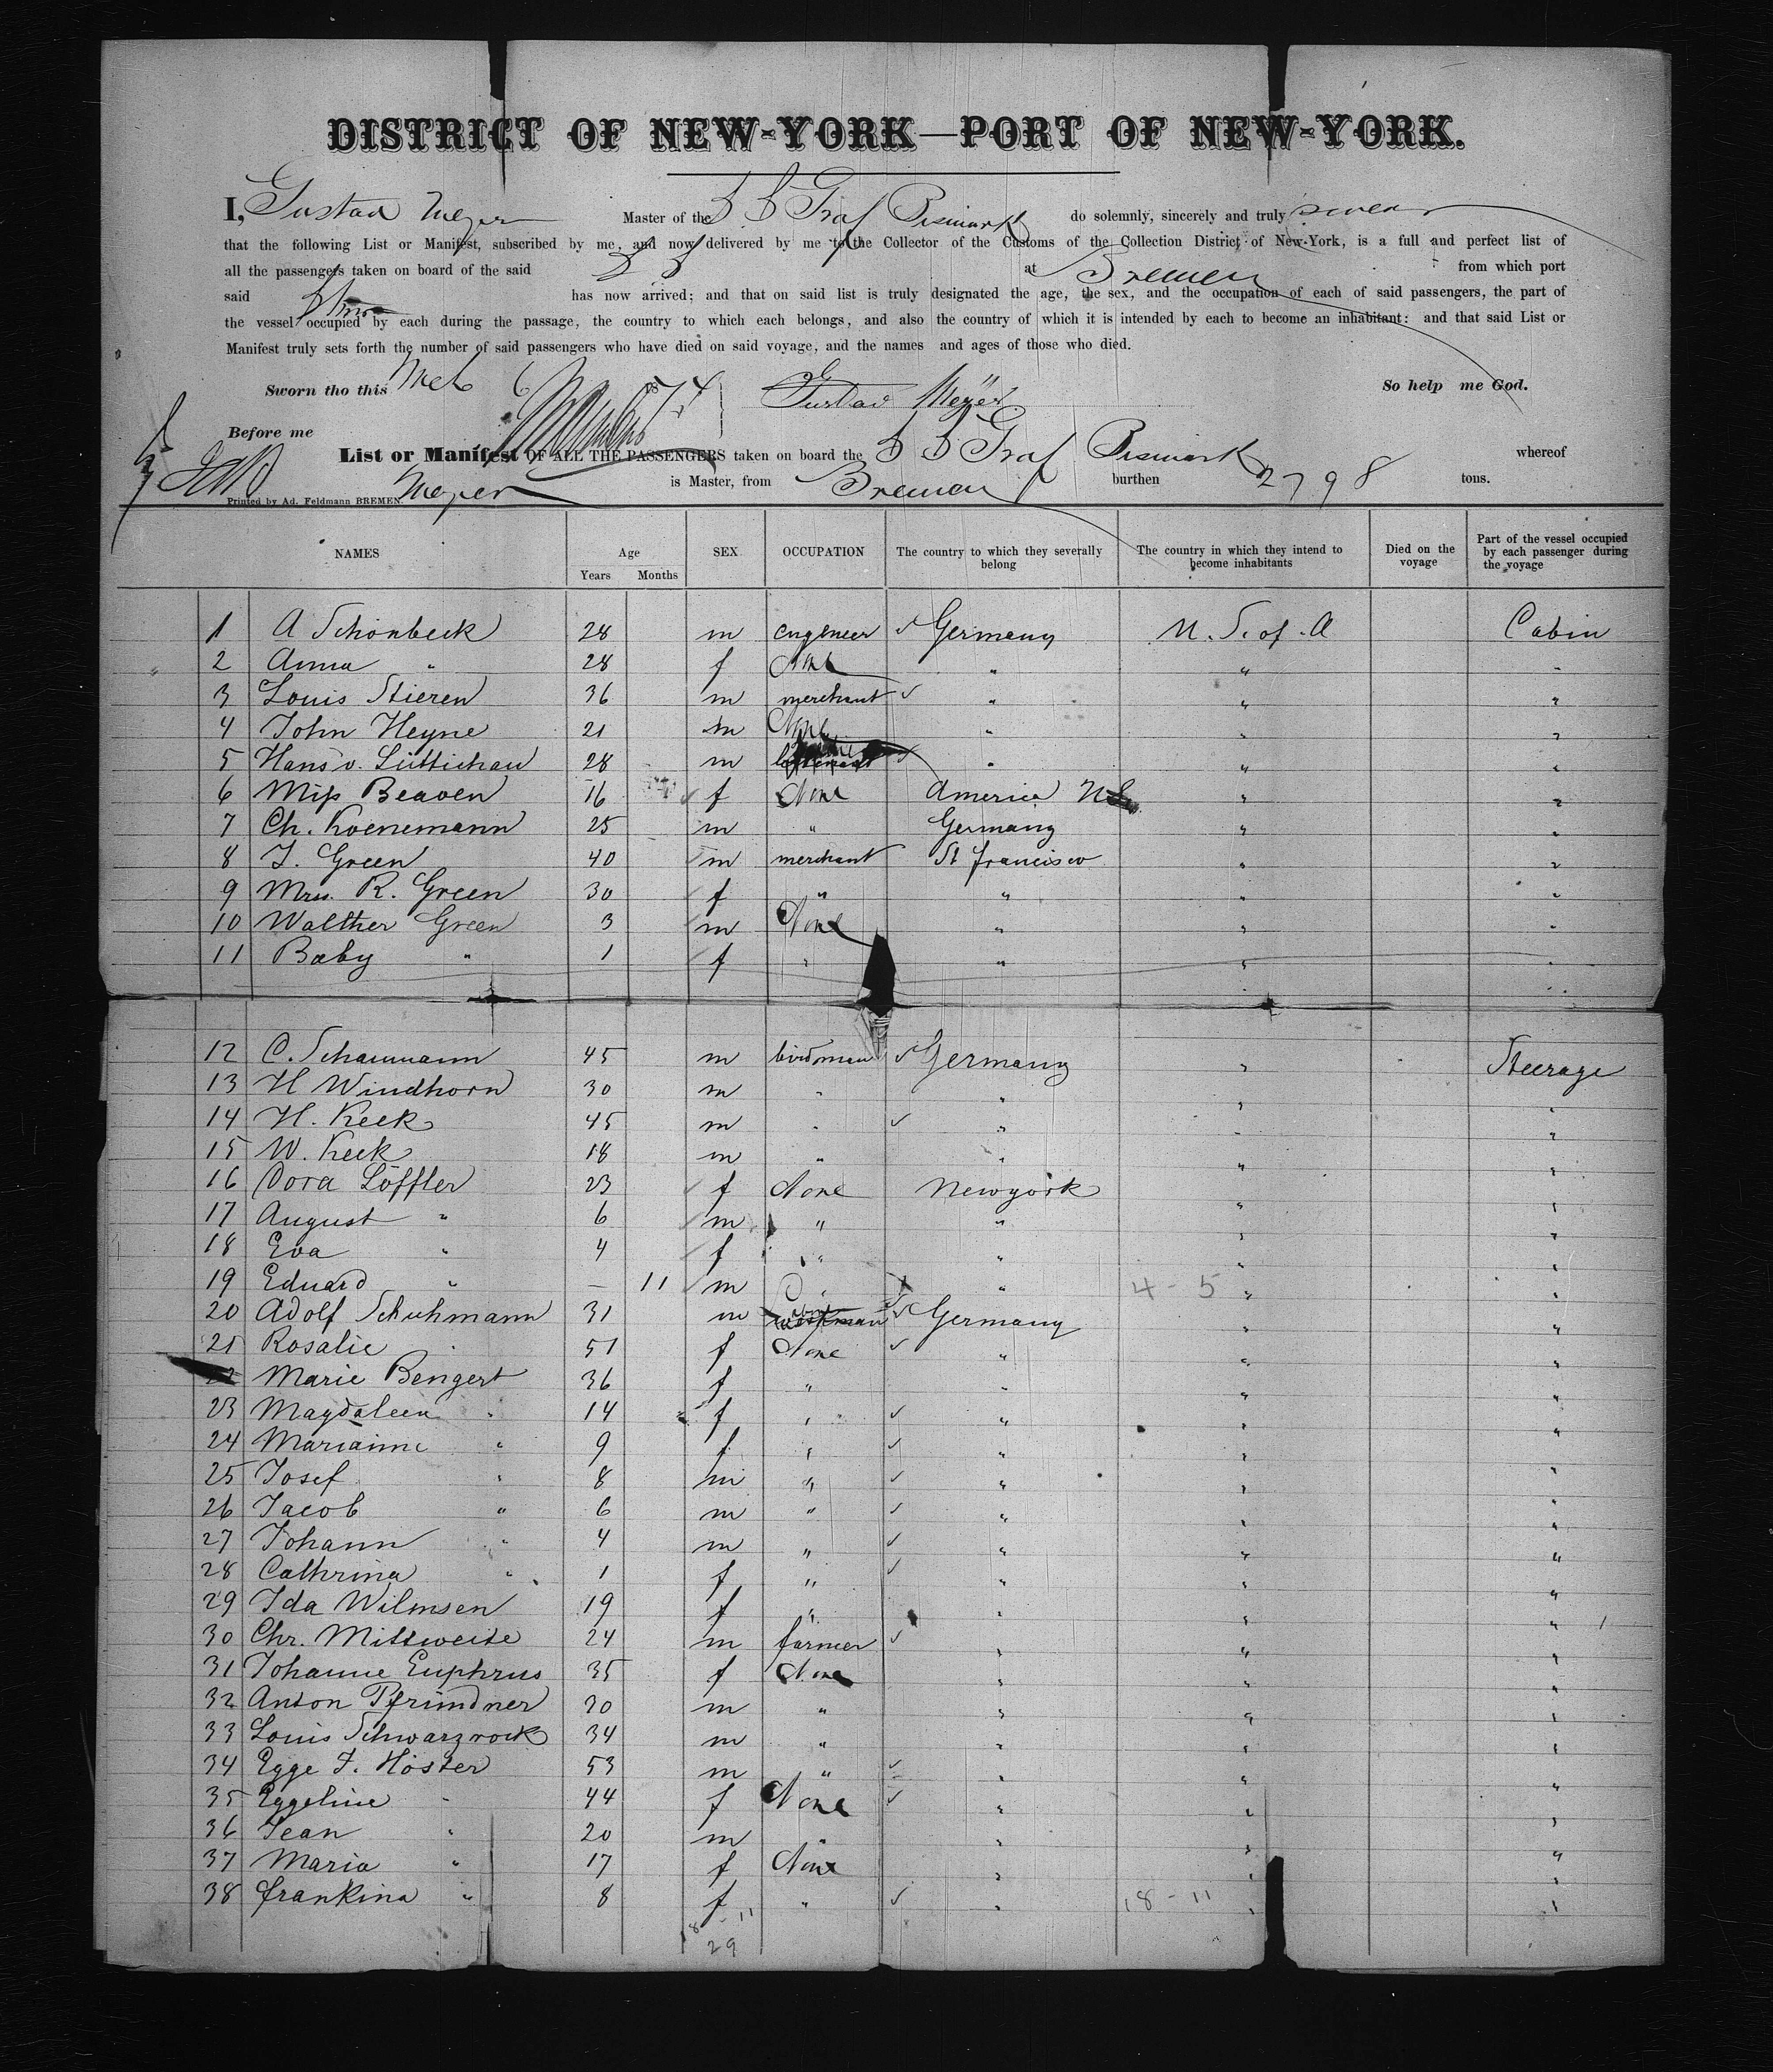 DISTRICT OF NEW-YORK—PORT OF NEW-YORK.
I, Gustav Meyer Master of the S S Graf Bismark do solemnly, sincerely and truly swear
that the following List or Manifest, subscribed by me, and now delivered by me to the Collector of the Customs of the Collection District of New-York, is a full and perfect list of
all the passengers taken on board of the said S S at Bremen from which port
said Stmr has now arrived; and that on said list is truly designated the age, the sex, and the occupation of each of said passengers, the part of
the vessel occupied by each during the passage, the country to which each belongs, and also the country of which it is intended by each to become an inhabitant: and that said List or
Manifest truly sets forth the number of said passengers who have died on said voyage, and the names and ages of those who died.
Sworn tho this Mch 6 1874 Gustav Meyer So help me God.
Before me
List or Manifest OF ALL THE PASSENGERS taken on board the S S Graf Bismark whereof
Meyer is Master, from Bremen burthen 2798 tons.
Printed by Ad. Feldmann BREMEN.
NAMES Age Years Months SEX OCCUPATION The country to which they severally belong The country in which they intend to become inhabitants Died on the voyage Part of the vessel occupied by each passenger during the voyage
1 A Schönbeck 28 m engeneer ✓ Germany U. S. of. A Cabin
2 Anna " 28 f None " " "
3 Louis Stieren 36 m merchant ✓ " " "
4 John Heyne 21 m None " " "
5 Hans v. Lüttichau 28 m " " "
6 Miss Beaven 16 f None America " "
7 Ch. Koenemann 25 m " Germany " "
8 J. Green 40 m merchant St francisco " "
9 Mrs. R. Green 30 f " " " "
10 Walther Green 3 m None " " "
11 Baby " 1 f " " " "
12 C. Schaumann 45 m birdman ✓ Germany " Steerage
13 H Windhorn 30 m " " " "
14 H. Keek 45 m " ✓ " " "
15 W. Keek 18 m " " " "
16 Dora Löffler 23 f None Newyork " "
17 August " 6 m " " " "
18 Eva " 4 f " " " "
19 Eduard " — 11 m " " 4 - 5 " "
20 Adolf Schuhmann 31 m workman ✓ Germany " "
21 Rosalie " 51 f None ✓ " " "
22 Marie Bengert 36 f " " " "
23 Magdaleen " 14 f " ✓ " " "
24 Marianne " 9 f " ✓ " " "
25 Josef " 8 m " ✓ " " "
26 Jacob " 6 m " ✓ " " "
27 Johann " 4 m " ✓ " " "
28 Cathrina " 1 f " ✓ " " "
29 Ida Wilmsen 19 f " " " "
30 Chr. Mittweite 24 m farmer ✓ " " "
31 Johanne Euphrus 35 f None " " "
32 Anton Pfrimdner 30 m " " " "
33 Louis Schwarzrock 34 m " " " "
34 Egge F. Höster 53 m " ✓ " " "
35 Eggeline " 44 f None ✓ " " "
36 Jean " 20 m " " " "
37 Maria " 17 f None " " "
38 frankina " 8 f " ✓ " 18 - 11 " "
18 - 11
29